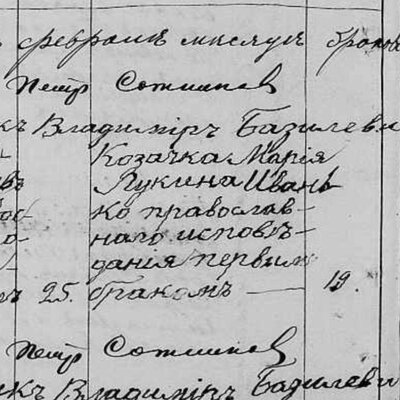 февраль мѣсяцъ браков
Петр Сотников
къ Владимiръ Базилеви
Козачка Марiя
Лукина Ивань
ко православ-
наго исповѣ-
данiя первым
25. бракомъ — 19.
Петр Сотников
икъ Владимiръ Базилеви